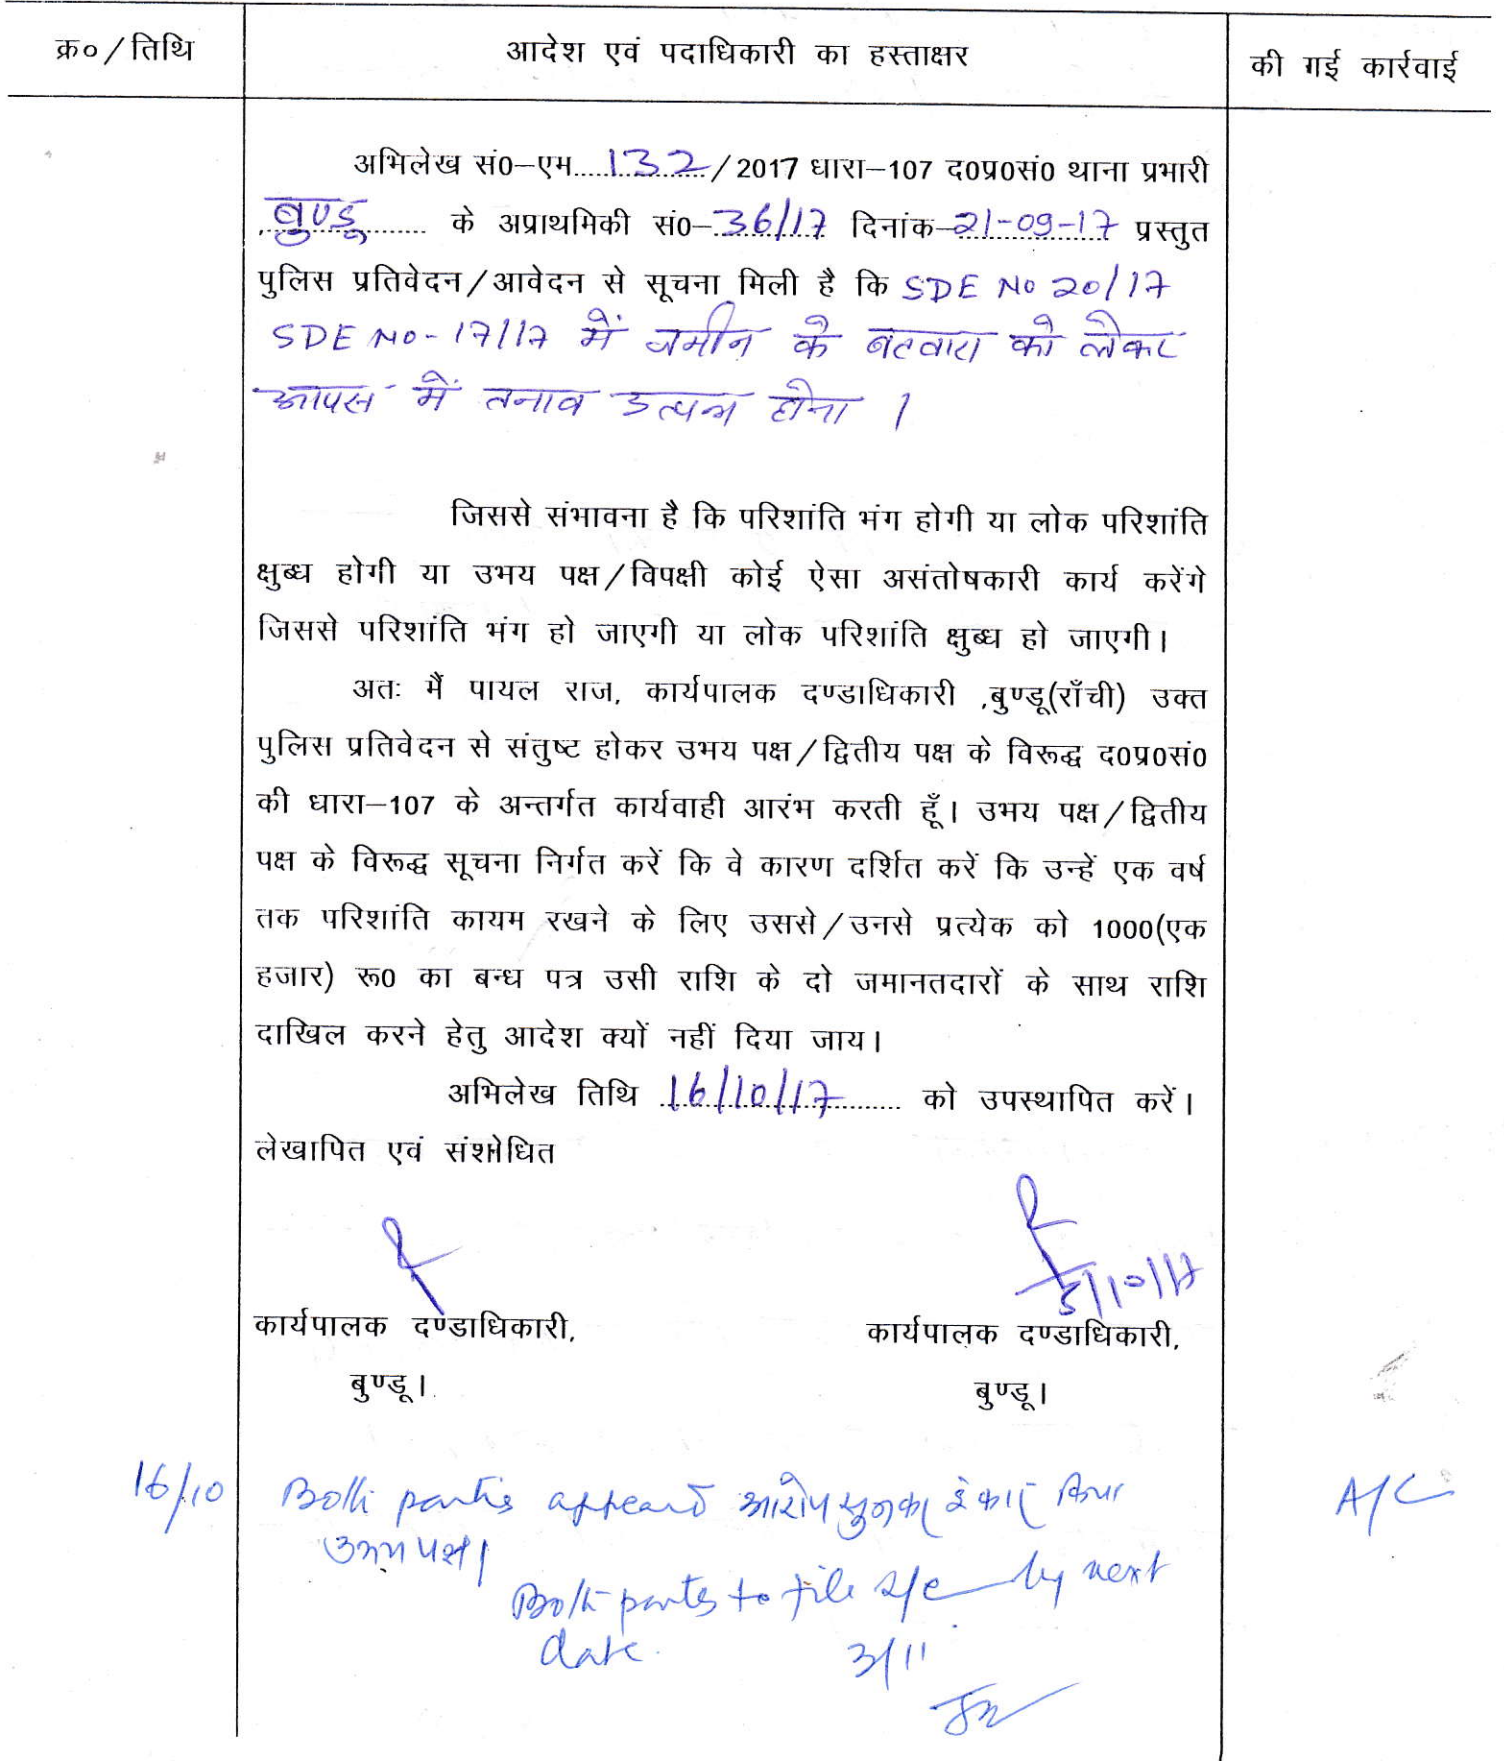 क्र०/तिथि
आदेश एवं पदाधिकारी का हस्ताक्षर
की गई कार्रवाई
अभिलेख सं0–एम.....132../2017 धारा–107 द0प्र0सं0 थाना प्रभारी
बुण्डू........ के अप्राथमिकी सं0–36/17 दिनांक–21-09-17 प्रस्तुत
पुलिस प्रतिवेदन/आवेदन से सूचना मिली है कि SDE No 20/17
SDE No-17/17 में जमीन के बटवारा को लेकर
आपस में तनाव उत्पन्न होना।
जिससे संभावना है कि परिशांति भंग होगी या लोक परिशांति
क्षुब्ध होगी या उभय पक्ष/विपक्षी कोई ऐसा असंतोषकारी कार्य करेंगे
जिससे परिशांति भंग हो जाएगी या लोक परिशांति क्षुब्ध हो जाएगी।
अतः मैं पायल राज, कार्यपालक दण्डाधिकारी ,बुण्डू(राँची) उक्त
पुलिस प्रतिवेदन से संतुष्ट होकर उभय पक्ष/द्वितीय पक्ष के विरूद्ध द0प्र0सं0
की धारा–107 के अन्तर्गत कार्यवाही आरंभ करती हूँ। उभय पक्ष/द्वितीय
पक्ष के विरूद्ध सूचना निर्गत करें कि वे कारण दर्शित करें कि उन्हें एक वर्ष
तक परिशांति कायम रखने के लिए उससे/उनसे प्रत्येक को 1000(एक
हजार) रू0 का बन्ध पत्र उसी राशि के दो जमानतदारों के साथ राशि
दाखिल करने हेतु आदेश क्यों नहीं दिया जाय।
अभिलेख तिथि 16/10/17 को उपस्थापित करें।
लेखापित एवं संशोधित
5/10/17
कार्यपालक दण्डाधिकारी,
कार्यपालक दण्डाधिकारी,
बुण्डू।
बुण्डू।
16/10 Both parties appeard आरोप सुनकर इंकार किया A/C
उभय पक्ष।
Both parties to file s/c by next
date. 3/11